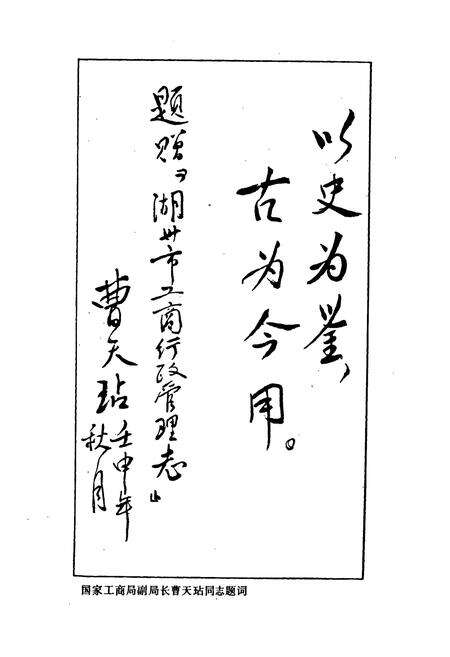 以史为鉴，
古为今用。
题赠《湖州市工商行政管理志》
曹天玷
壬申年
秋月
国家工商局副局长曹天玷同志题词